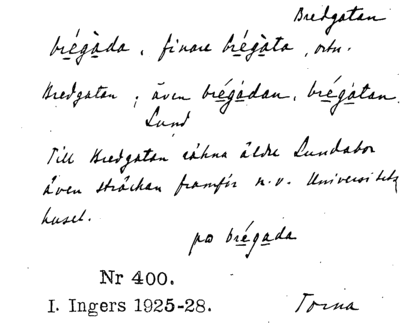 Bredgatan
brégàda, finare brégàta, ortn.
Bredgatan; även brégàdan, brégàtan.
Lund
Till Bredgatan räkna äldre Lundabor
även sträckan framför n.v. Universitets
huset.
po brégada
Nr 400.
I. Ingers 1925-28. Torna